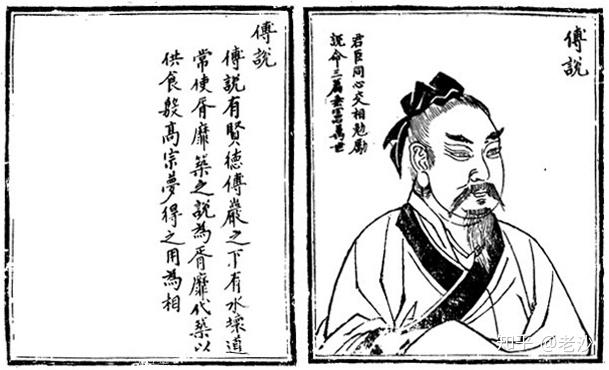 傅説
君臣同心交相勉勵
説命三篇垂憲萬世
傅説
傅説有賢德傅巖之下有水壞道
常使胥靡築之説為胥靡代築以
供食殷髙宗夢得之用為相
知乎 @老沙